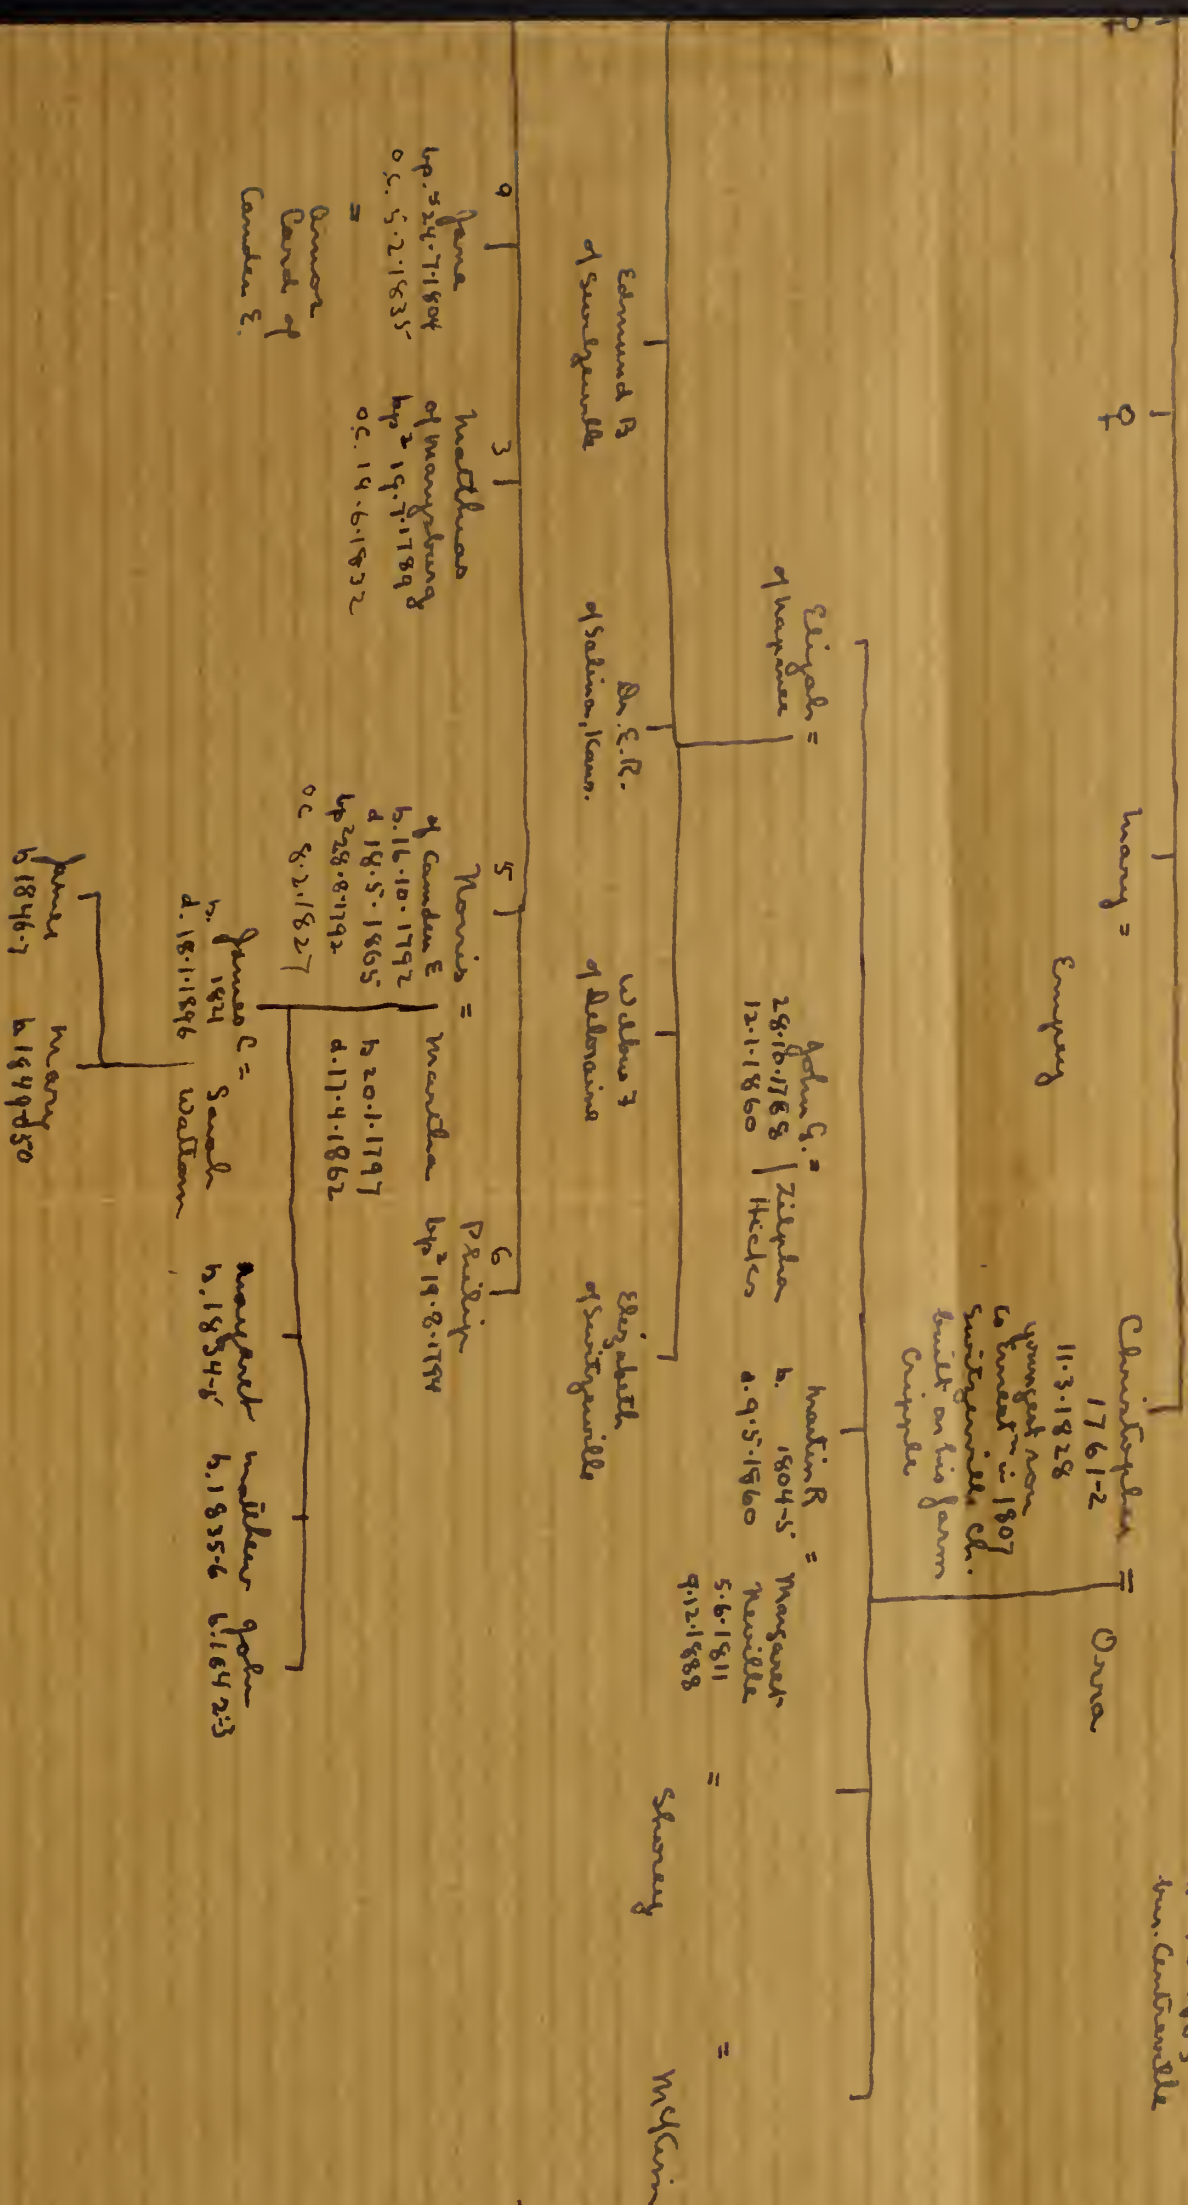 bur. Centreville
♀
♀
Mary =
Empey
Christopher = Orra
1761-2
11.3.1828
youngest son
in 1807
Switzerville Ch.
built on his farm
Cripple
Elijah =
of Napanee
John G. =
28.10.1788
12.1.1860
Zilpha
Hicks
Martin R =
b. 1804-5
d. 9.5.1860
Margaret
Neville
5.6.1811
9.12.1888
=
Shorey
=
Edmund B
of Switzerville
Dr. E.R.
of Salina, Kans.
Wilbur F
of Deloraine
Elizabeth
of Switzerville
9
Jane
bp. 24.7.1804
O.C. 5.2.1835
=
Amos
Card of
Camden E.
3
Matthias
of Marysburg
bp² 19.7.1789
O.C. 14.6.1832
5
Norris =
of Camden E
b. 16.10.1792
d 18.5.1865
bp² 28.8.1792
O.C 8.2.1827
Martha
b 20.1.1797
d. 17.4.1862
6
Philip
bp² 19.8.1794
James C =
b. 1821
d. 18.1.1896
Sarah
Wattam
Margaret
b. 1834-5
Matthew
b. 1835-6
John
b. 1842-3
James
b 1846-7
Mary
b 1849-50